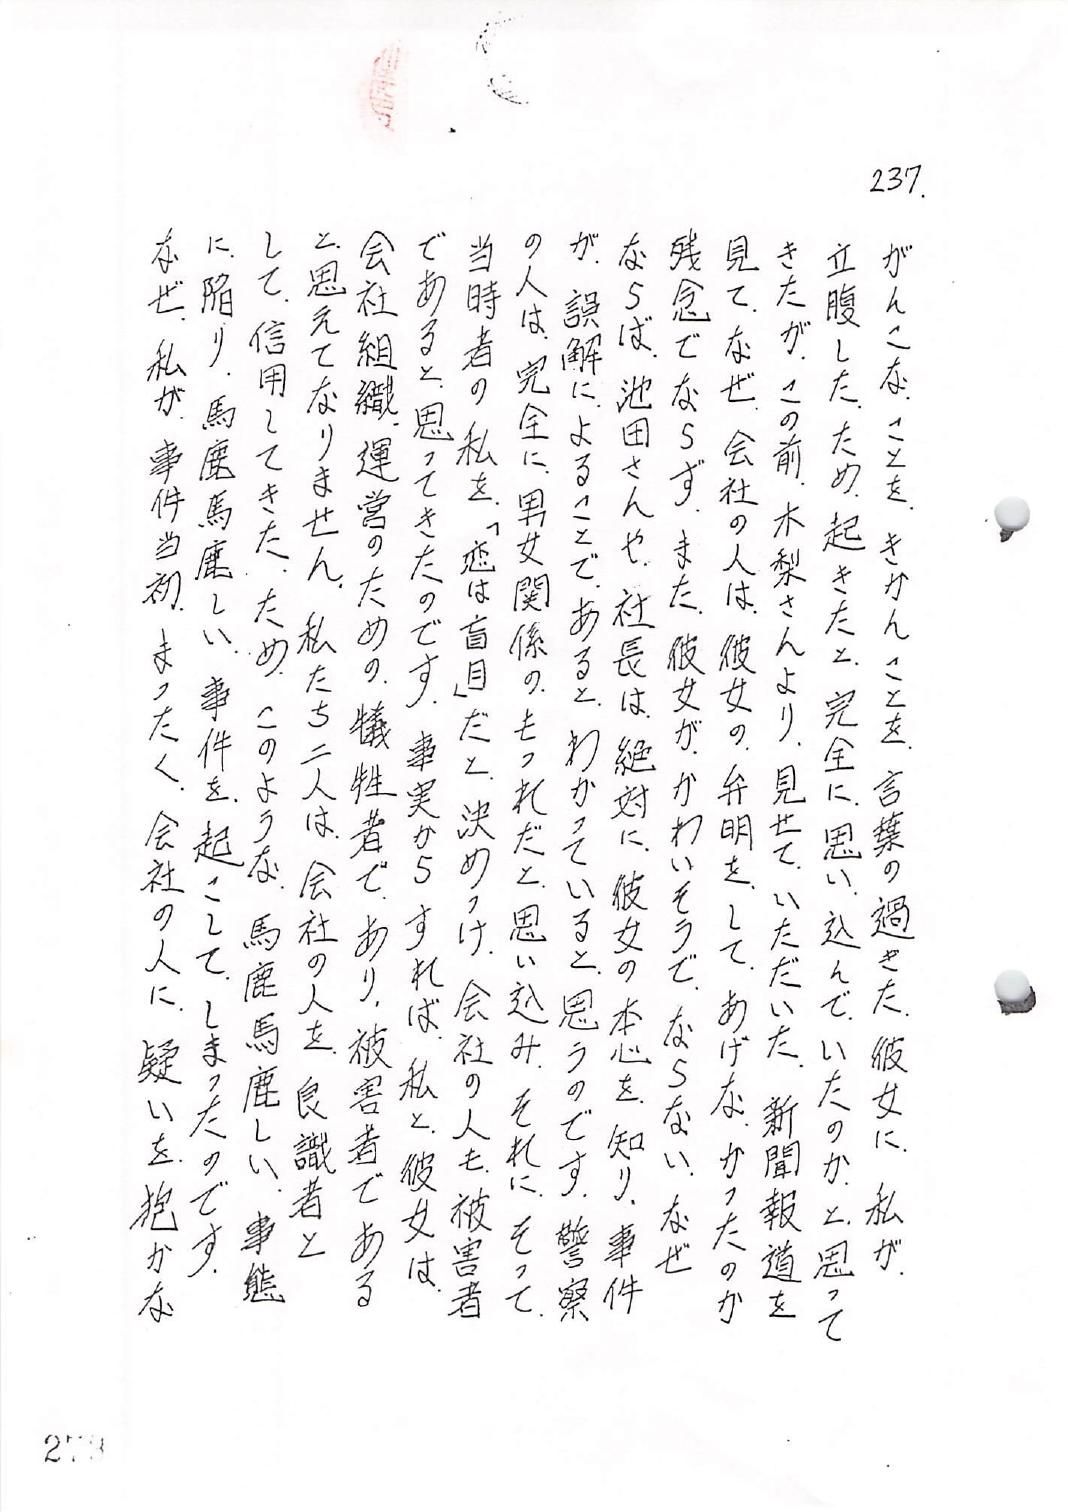 237.
がんこな、ことを、きかんことを、言葉の過ぎた、彼女に、私が、
立腹した、ため、起きたと、完全に、思い、込んで、いたのか、と、思って
きたが、この前、木梨さんより、見せて、いただいた、新聞報道を
見て、なぜ、会社の人は、彼女の、弁明を、して、あげな、かったのか
残念でならず、また、彼女が、かわいそうで、ならない、なぜ
ならば、池田さんや、社長は、絶対に、彼女の本心を、知り、事件
が、誤解に、よることで、あると、わかっていると、思うのです、警察
の人は、完全に、男女関係の、もつれだと、思い込み、それに、そって、
当時者の私を、「恋は盲目」だと、決めつけ、会社の人も、被害者
であると、思ってきたのです、事実からすれば、私と、彼女は、
会社組織、運営のための、犠牲者で、あり、被害者である
と、思えてなりません、私たち二人は、会社の人を、良識者と
して、信用してきた、ため、このような、馬鹿馬鹿しい、事態
に、陥り、馬鹿馬鹿しい、事件を、起こして、しまったのです、
なぜ、私が、事件当初、まったく、会社の人に、疑いを、抱かな
273